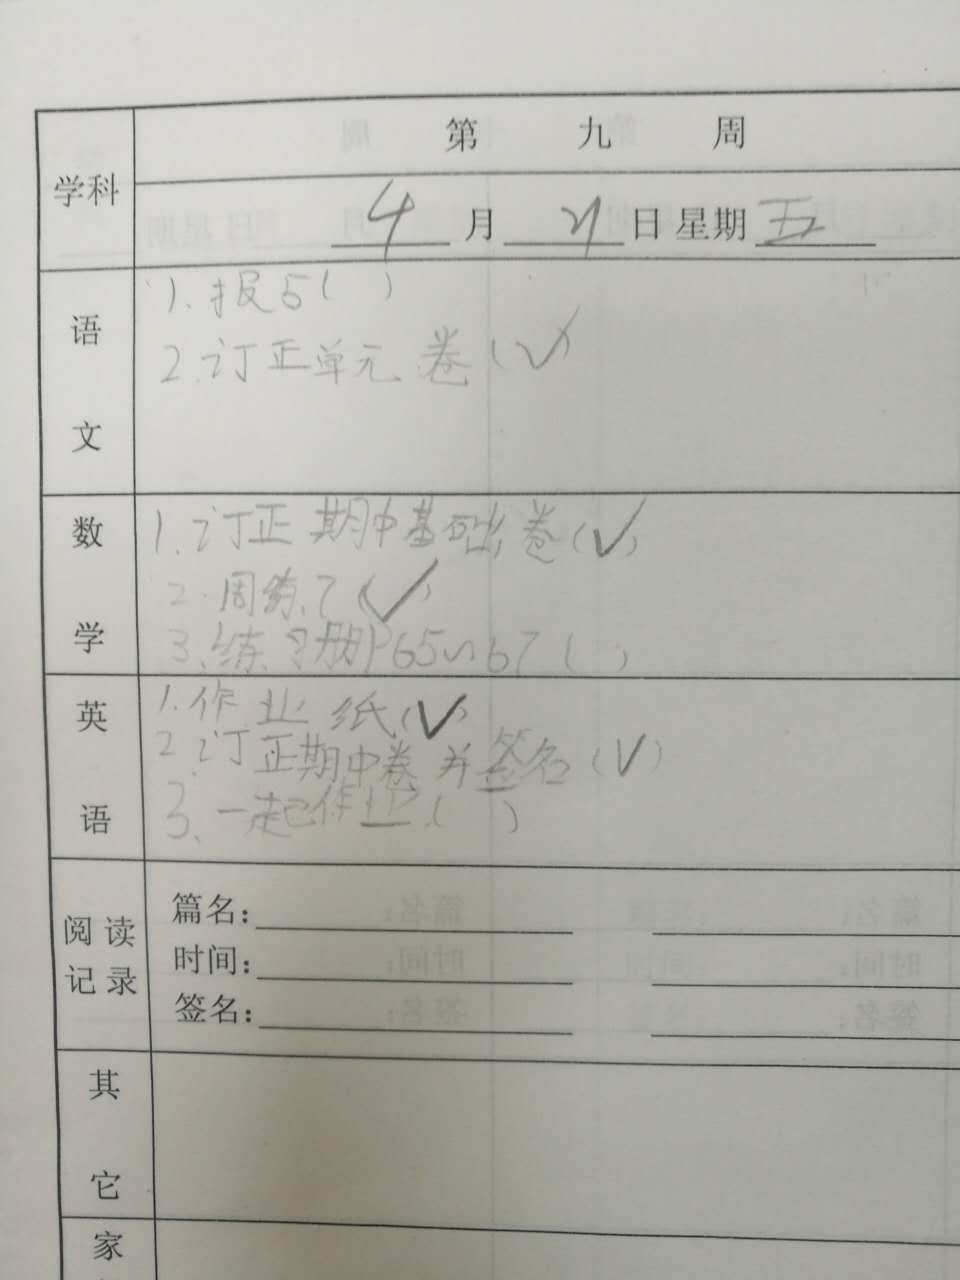 第 九 周
学科
4月21日星期五
语文
1.报5( )
2.订正单元卷(√)
数学
1.订正期中基础卷(√)
2.周练7(√)
3.练习册P65~67( )
英语
1.作业纸(√)
2.订正期中卷并签名(√)
3.一起作业( )
阅读记录
篇名:
时间:
签名:
其它
家